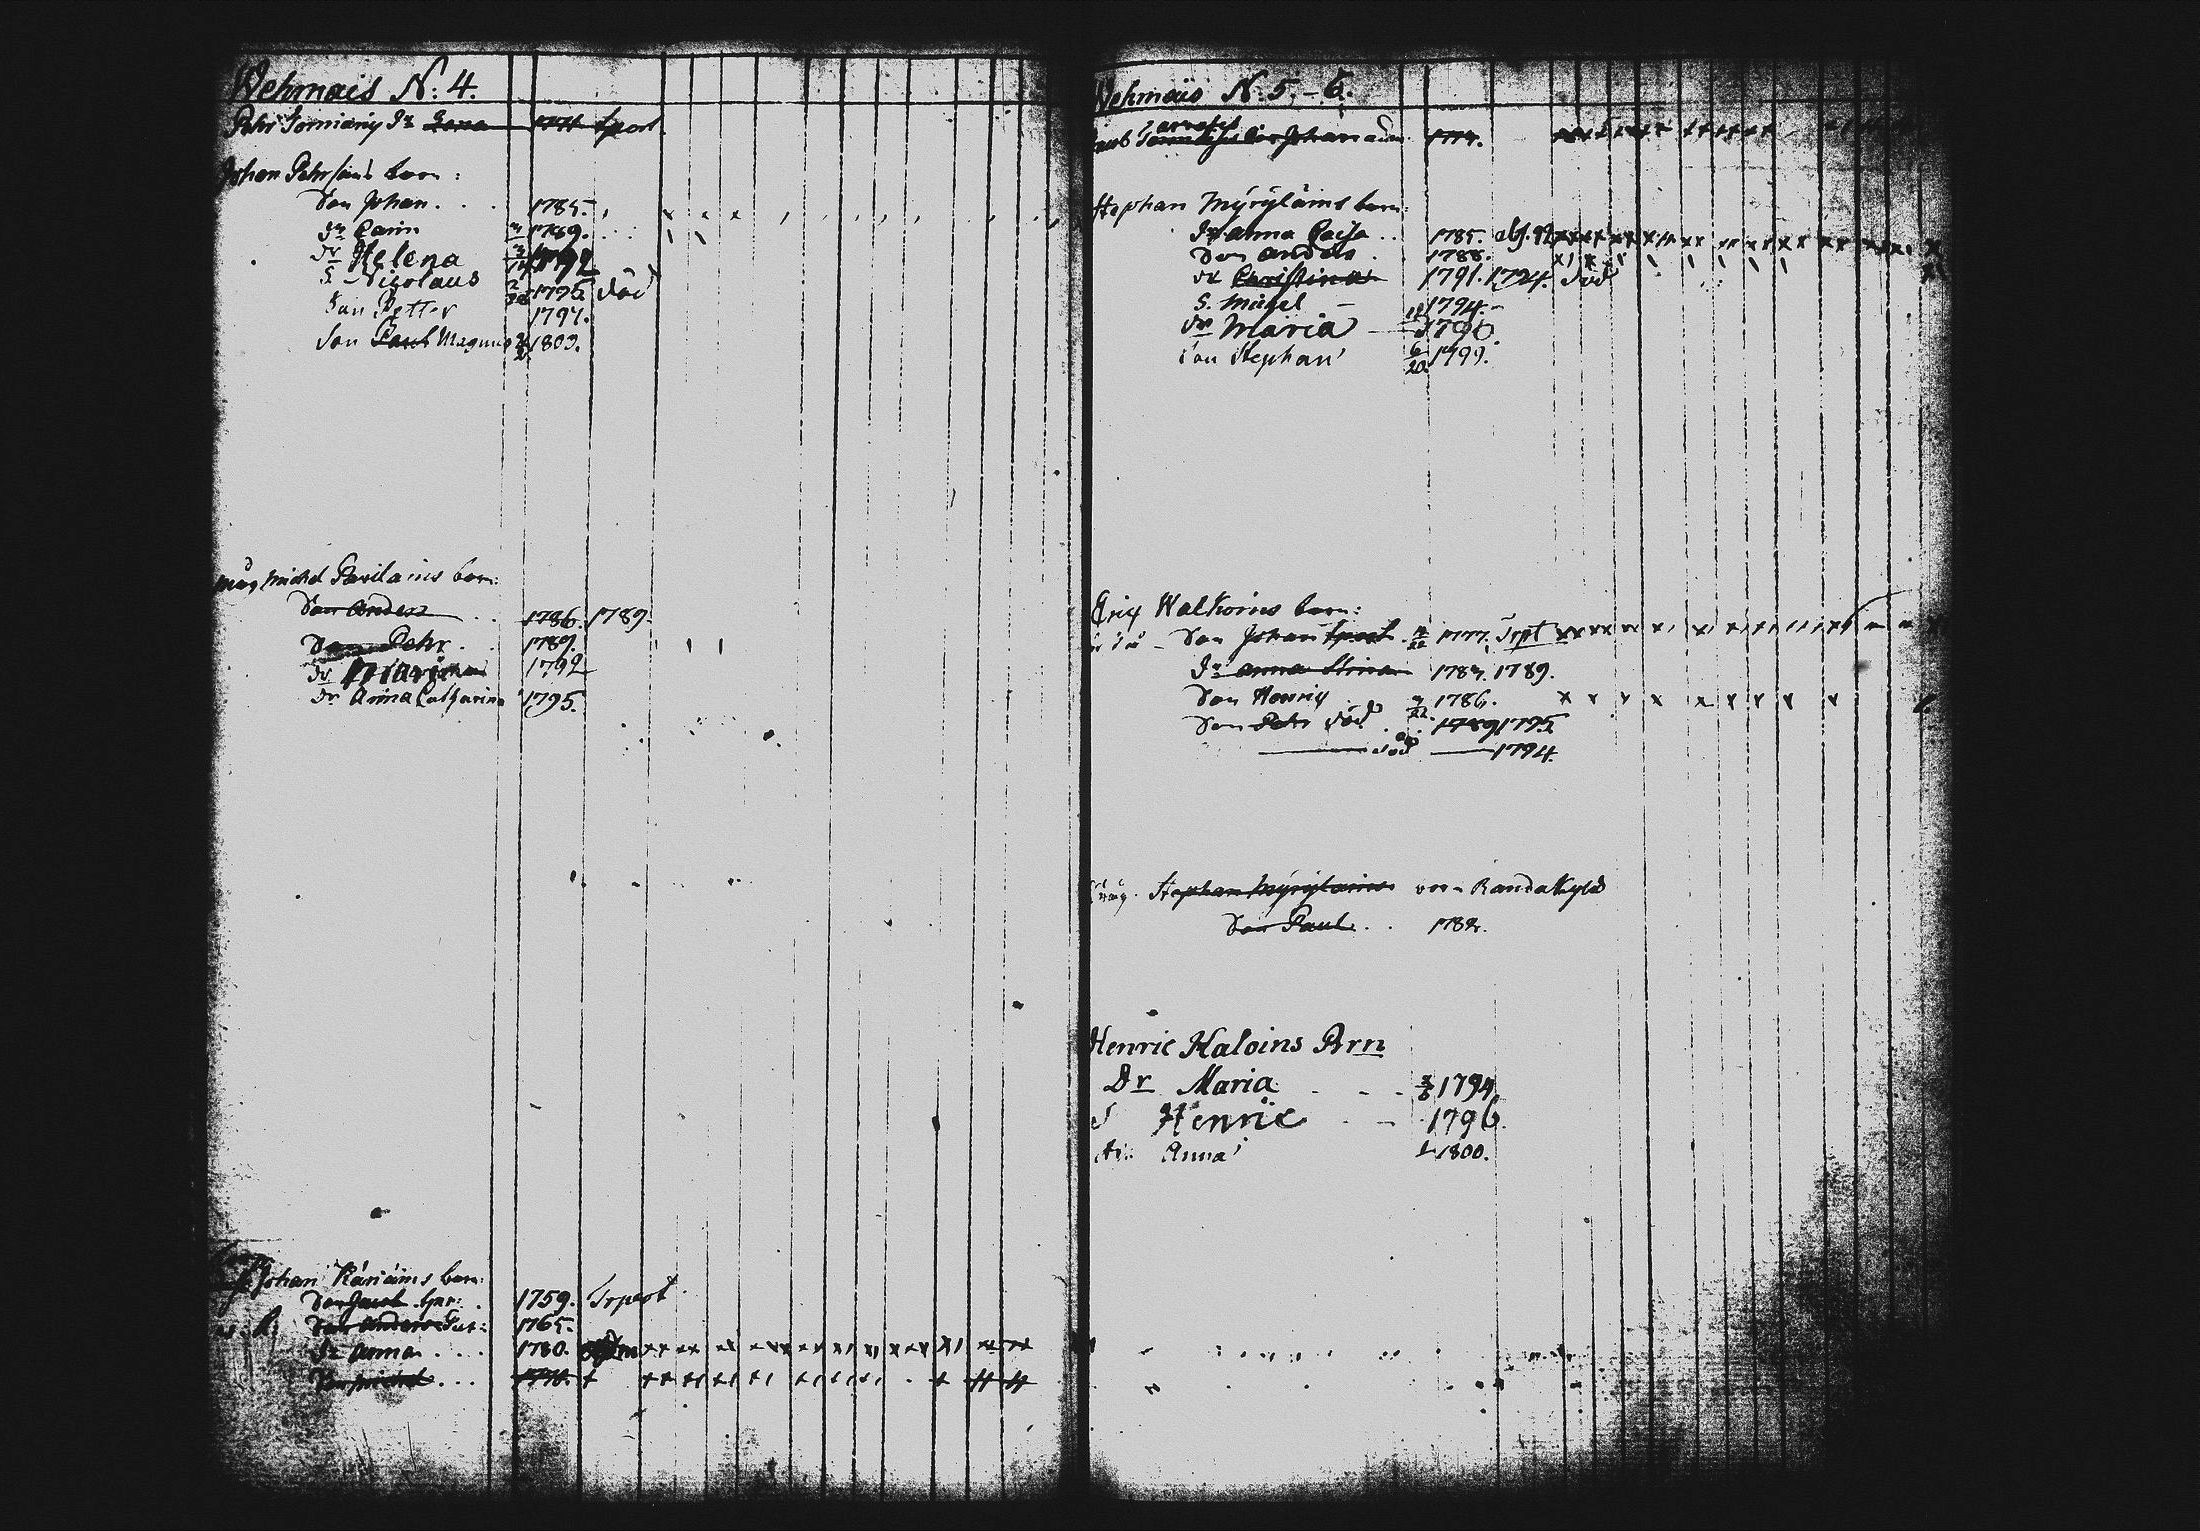 Wehmais N: 4.
Pehr Torniainy Dr Lena 1771 spest
Johan Pehrsains barn:
Son Johan . . . 1785.
Dr Carin 1789.
Dr Helena 1792
S. Nicolaus 1795 död
Son Petter 1797.
Son Paul Magnus 1800.
måg Michel Pavilains barn:
Son Anders . . 1786. 1789.
Son Pehr . 1789.
Dr Maria 1792
Dr Anna Catharina 1795.
Johan Käriäins barn:
Son Jacob . 1759. Trpest
Son Anders 1765.
Dr Anna . . . . 1780.
Michel . . .
Wehmais N: 5 - 6.
Johan 1774.
Stephan Myrylains barn:
Dr Anna Caisa . . 1785. abs. 92
Son Anders . 1788.
Dr Christina 1791. 1794. död
S. Michel 1794.
Dr Maria 1796.
Son Stephan 6/20 1799.
Eric Walkoins barn:
Son Johan 1777. Trpt
Dr Anna Stina 1789.
Son Henric 1786.
Son Pehr död . . 1789 1795
död 1794.
måg. Stephan Myrylains Randakylä
Son Paul . . 1782.
Henric Haloins Brn
Dr Maria - - - 1794
S Henric - - 1796.
Anna 1800.